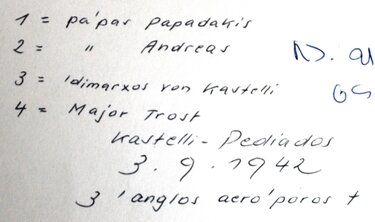 1 = pa'pas Papadakis
2 = " Andreas
3 = 'idimarxos von Kastelli
4 = Major Trost
Kastelli - Pediados
3. 9. 1942
3 'anglos aero'poros +